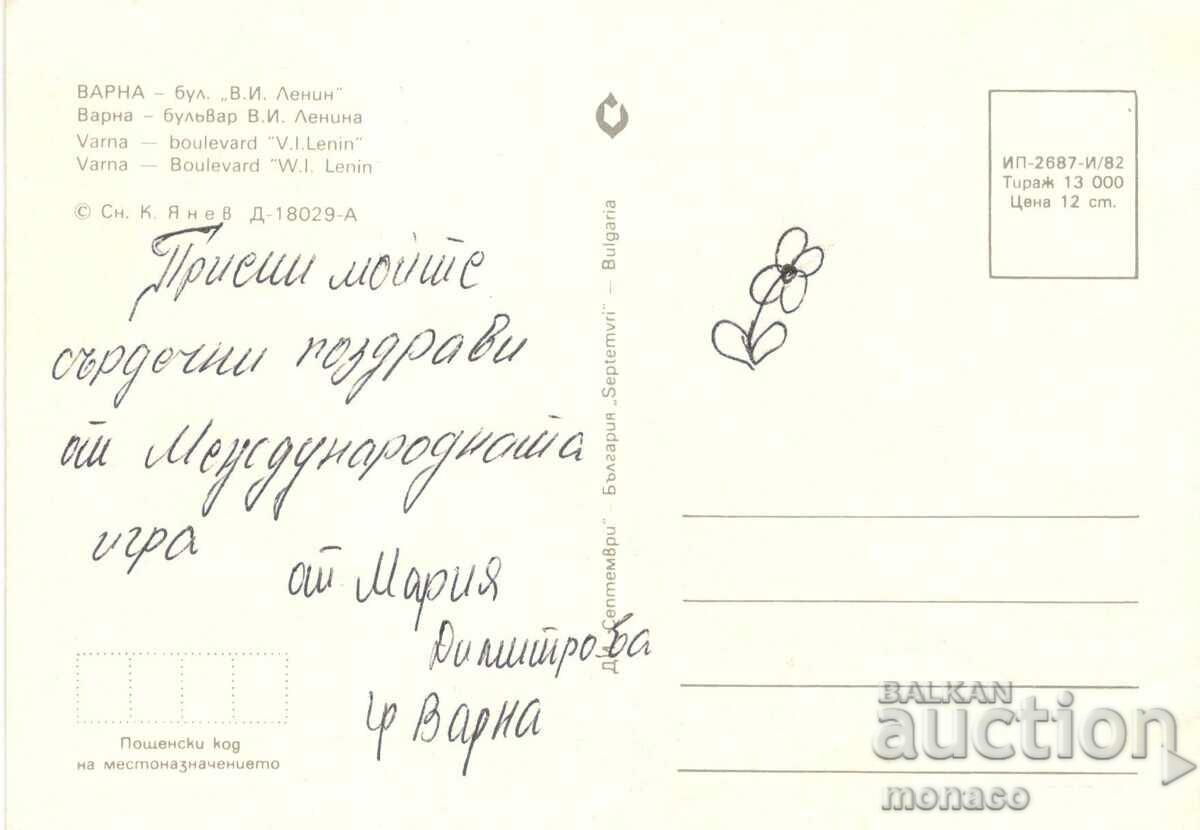 ВАРНА – бул. „В.И. Ленин"
Варна – бульвар В.И. Ленина
Varna — boulevard "V.I.Lenin"
Varna — Boulevard "W.I. Lenin
© Сн. К. Янев Д-18029-А
Приеми мойте
сърдечни поздрави
от Международната
игра
от Мария
Димитрова
гр Варна
Пощенски код
на местоназначението
ДИ „Септември" – България „Septemvri" – Bulgaria
ИП-2687-И/82
Тираж 13 000
Цена 12 ст.
BALKAN
auction
monaco